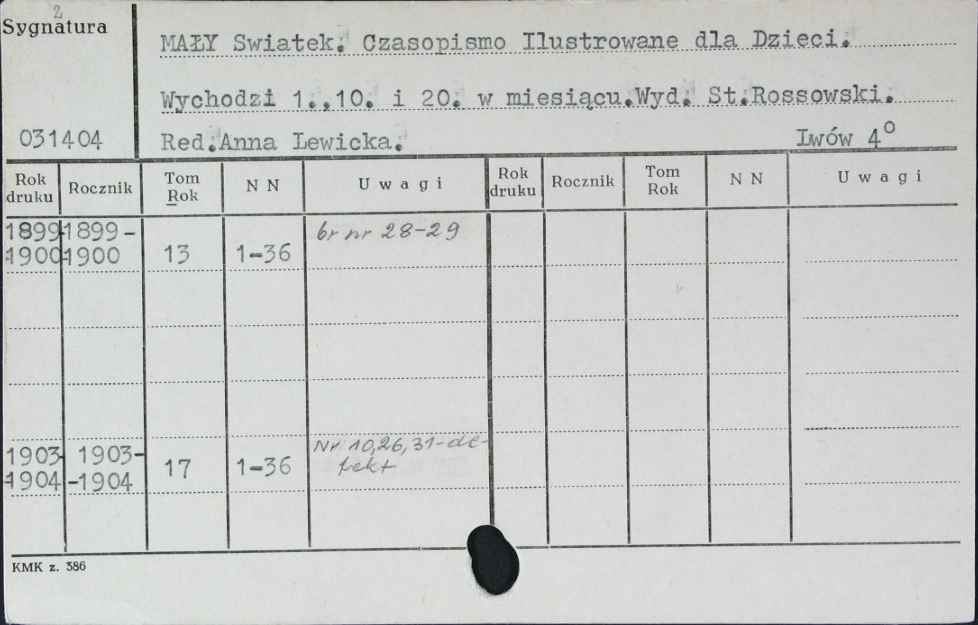 2
Sygnatura
MAŁY Swiatek. Czasopismo Ilustrowane dla Dzieci.
Wychodzi 1.,10. i 20. w miesiącu.Wyd. St.Rossowski.
031404
Red.Anna Lewicka. Lwów 4°
Rok druku Rocznik Tom Rok N N Uwagi Rok druku Rocznik Tom Rok N N Uwagi
1899- 1899 - br nr 28-29
-1900 -1900 13 1-36
1903- 1903- Nr 10,26,31-de-
-1904 -1904 17 1-36 fekt
KMK z. 386